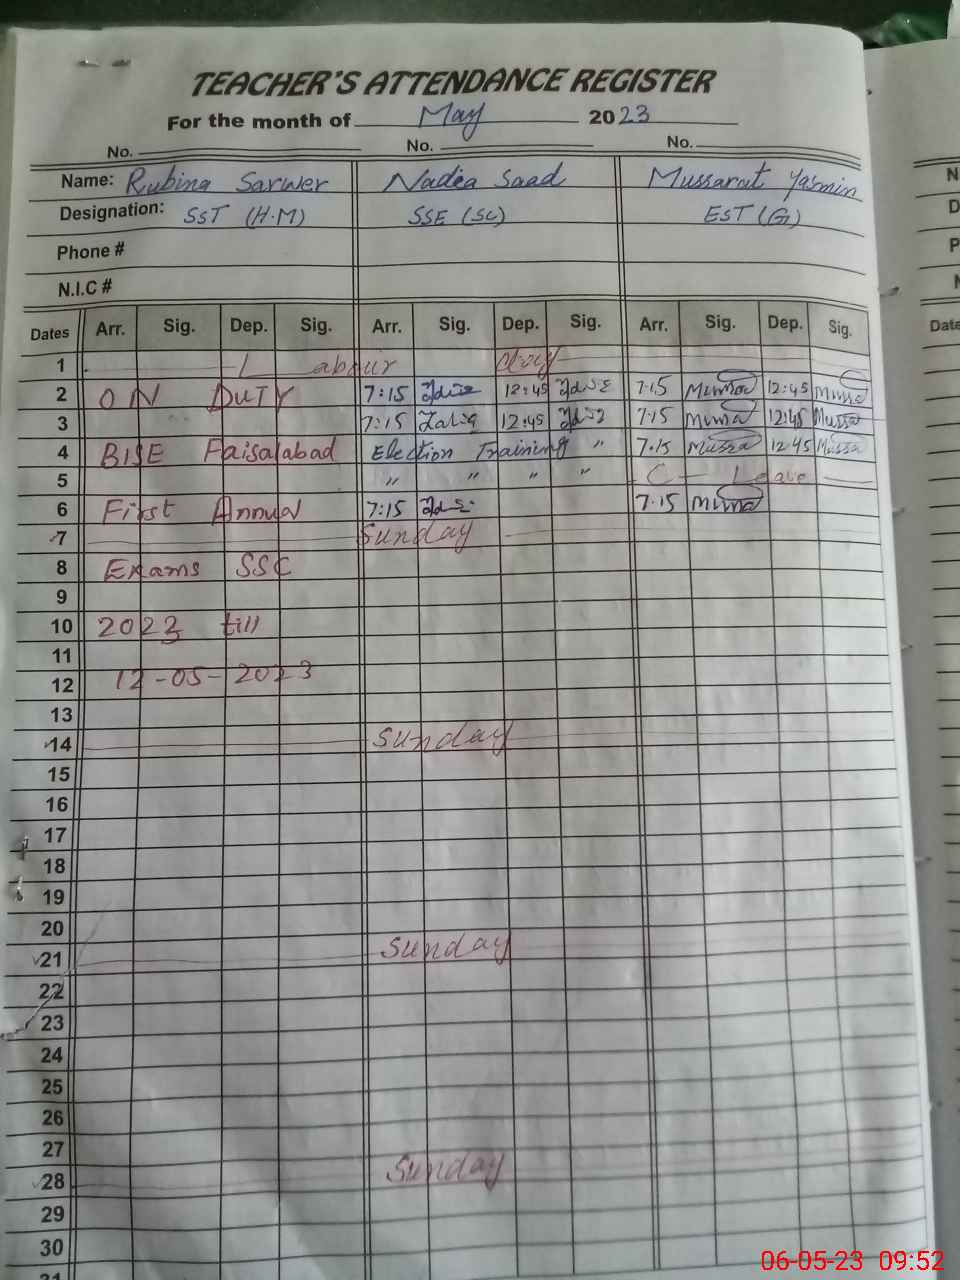 TEACHER'S ATTENDANCE REGISTER
For the month of May 2023
No. No. No.
Name: Rubina Sarwer Nadia Saad Mussarat Yasmin
Designation: SST (H.M) SSE (SC) EST (G)
Phone #
N.I.C #
Dates Arr. Sig. Dep. Sig. Arr. Sig. Dep. Sig. Arr. Sig. Dep. Sig.
1 Labour day
2 ON DUTY 7:15 12:45 7.15 12:45
3 7:15 12:45 7.15 12:45
4 BISE Faisalabad Election Training " 7.15 12 45
5 " " " " C- Leave
6 First Annual 7:15 7.15
7 Sunday
8 Exams SSC
9
10 2023 till
11
12 12-05-2023
13
14 Sunday
15
16
17
18
19
20
21 Sunday
22
23
24
25
26
27
28 Sunday
29
30
31
N
D
P
N
Date
06-05-23 09:52